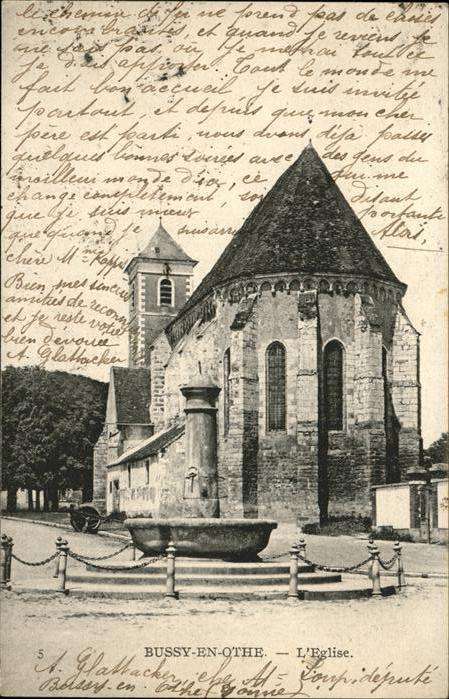 le chemin de fer ne prend pas de caisses
encore brisées, et quand je reviens, je
ne sais pas, où je me trouve
je dois approver. Tout le monde me
fait bon accueil je suis invitée
partout, et depuis que mon cher
père est parti, nous avons déjà passé
quelques bonnes soirées avec des gens du
meilleur monde d'ici, ce qui me
change complètement, son disant
que je suis mieux portante
que quand je arrivée. Alors,
chère M
Bien mes sincères
amitiés de
et je reste votre
bien dévouée
A. Glattacker
5 BUSSY-EN-OTHE. — L'Eglise.
A Glattacker chez M. Loup, député
Bussy en Othe (Yonne)